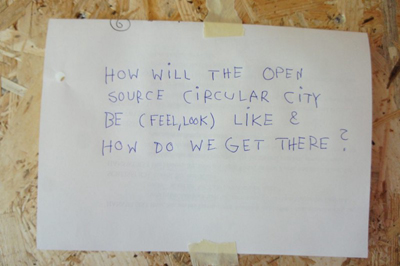 6
HOW WILL THE OPEN
SOURCE CIRCULAR CITY
BE (FEEL, LOOK) LIKE &
HOW DO WE GET THERE?